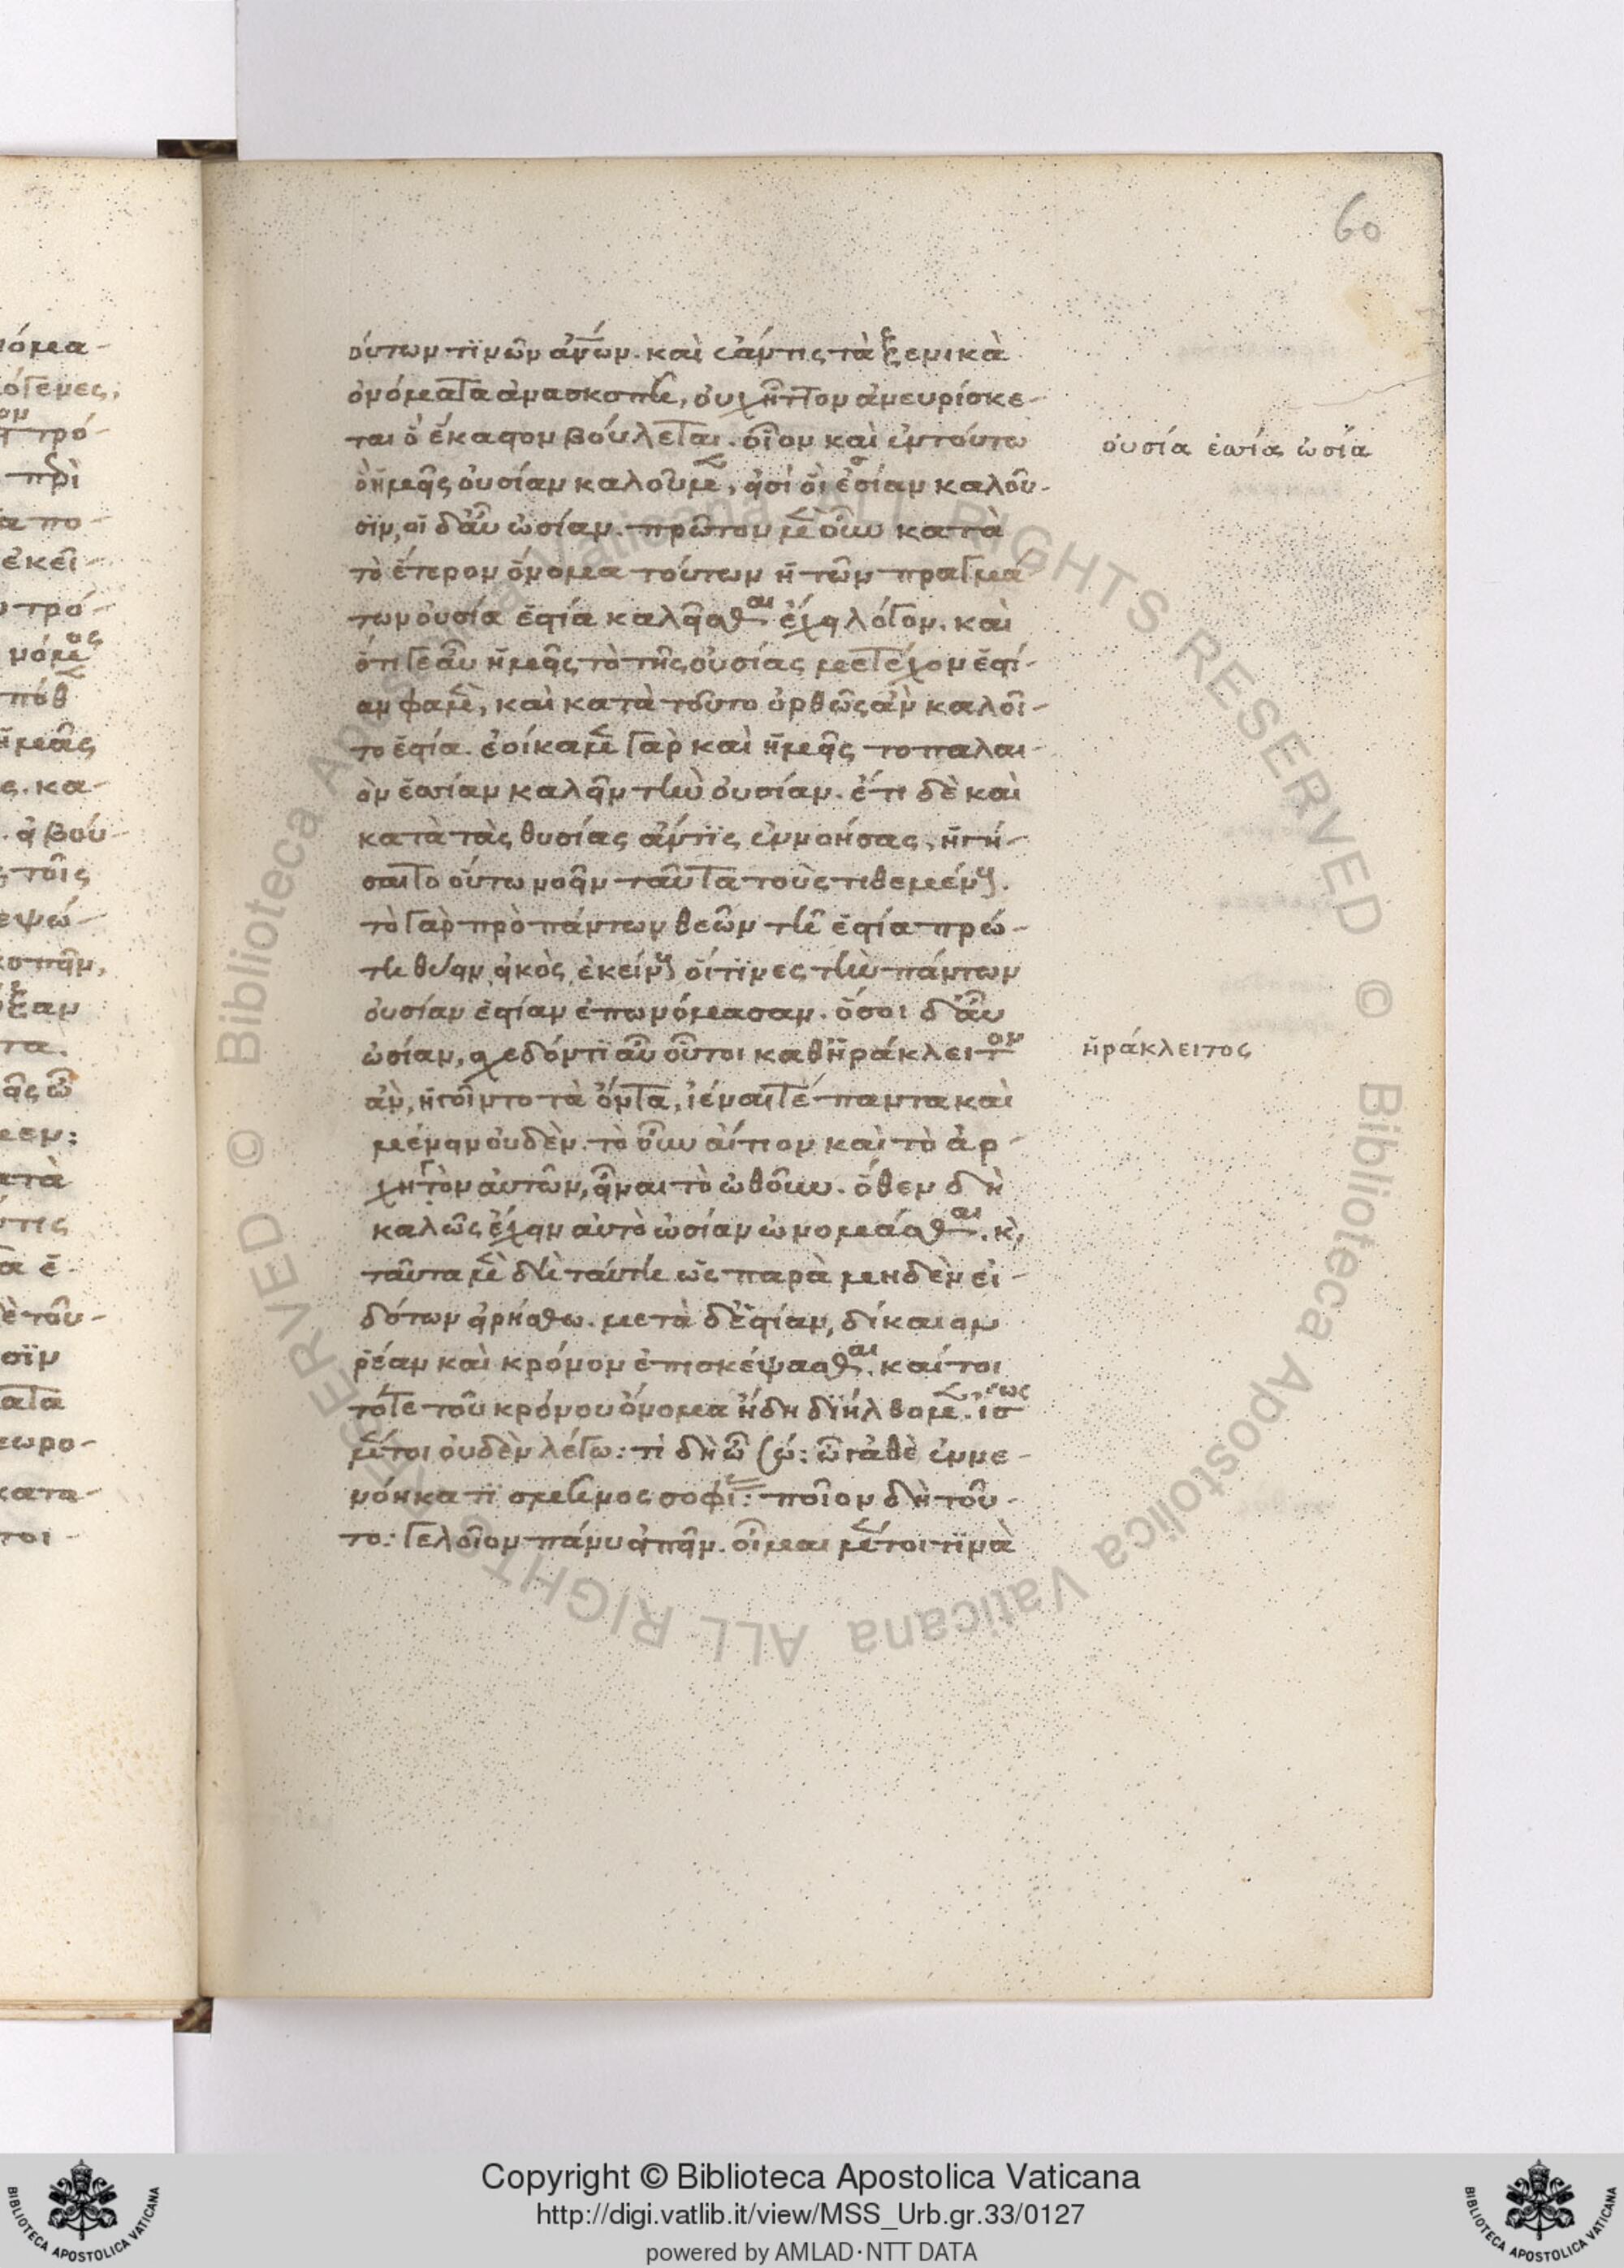 60
ούτων τινῶν ἀνῶν. καὶ ἐάν τις τὰ ξενικὰ
ὀνόματα ἀνασκοπῆ, οὐχ ἧττον ἀνευρίσκε-
ται ὃ ἕκαστον βούλεται. οἷον καὶ ἐν τούτω
ὃ ἡμεῖς οὐσίαν καλοῦμεν, εἰσὶ οἳ ἐσσίαν καλοῦ-
σιν, οἱ δ' αὖ ὠσίαν. πρῶτον μὲν οὖν κατὰ
τὸ ἕτερον ὄνομα τούτων ἡ τῶν πραγμά
των οὐσία ἑστία καλεῖσθαι ἔχει λόγον. καὶ
ὅτι γε αὖ ἡμεῖς τὸ τῆς οὐσίας μετέχον ἑστί-
αν φαμὲν, καὶ κατὰ τοῦτο ὀρθῶς ἂν καλοῖ-
το ἑστία. ἐοίκαμεν γὰρ καὶ ἡμεῖς το παλαι-
ὸν ἑσσίαν καλεῖν τὴν οὐσίαν. ἔτι δὲ καὶ
κατὰ τὰς θυσίας ἄν τις ἐννοήσας, ἡγή-
σαιτο οὕτω νοεῖν ταῦτα τοὺς τιθεμένους.
τὸ γὰρ πρὸ πάντων θεῶν τῆ ἑστία πρώ-
τη θύειν εἰκὸς ἐκείνους οἵτινες τὴν πάντων
οὐσίαν ἑστίαν ἐπωνόμασαν. ὅσοι δ' αὖ
ὠσίαν, σχεδόν τι αὖ οὗτοι καθ' ἡράκλειτον
ἂν, ἡγοῖντο τὰ ὄντα, ἰέναι τέ παντα καὶ
μένειν οὐδὲν. τὸ οὖν αἴτιον καὶ τὸ ἀρ-
χηγὸν αὐτῶν, εἶναι τὸ ὠθοῦν. ὅθεν δὴ
καλῶς ἔχειν αὐτὸ ὠσίαν ὠνομάσθαι. κ,
ταῦτα μὲν δὴ ταύτη ὡς παρὰ μηδὲν εἰ-
δότων εἰρήσθω. μετὰ δ' ἑστίαν, δίκαιον
ῥέαν καὶ κρόνον ἐπισκέψασθαι. καίτοι
τό γε τοῦ κρόνου ὄνομα ἤδη διήλθομεν. ἴσως
μέντοι οὐδὲν λέγω: τί δὴ ὦ σώ: ὦ 'γαθὲ ἐννε-
νόηκα τι σμῆνος σοφίας: ποῖον δὴ τοῦ-
το: γελοῖον πάνυ εἰπεῖν. οἶμαι μέντοι τινὰ
οὐσία ἐσσία ὠσία
ἡράκλειτος
Copyright © Biblioteca Apostolica Vaticana
http://digi.vatlib.it/view/MSS_Urb.gr.33/0127
powered by AMLAD·NTT DATA